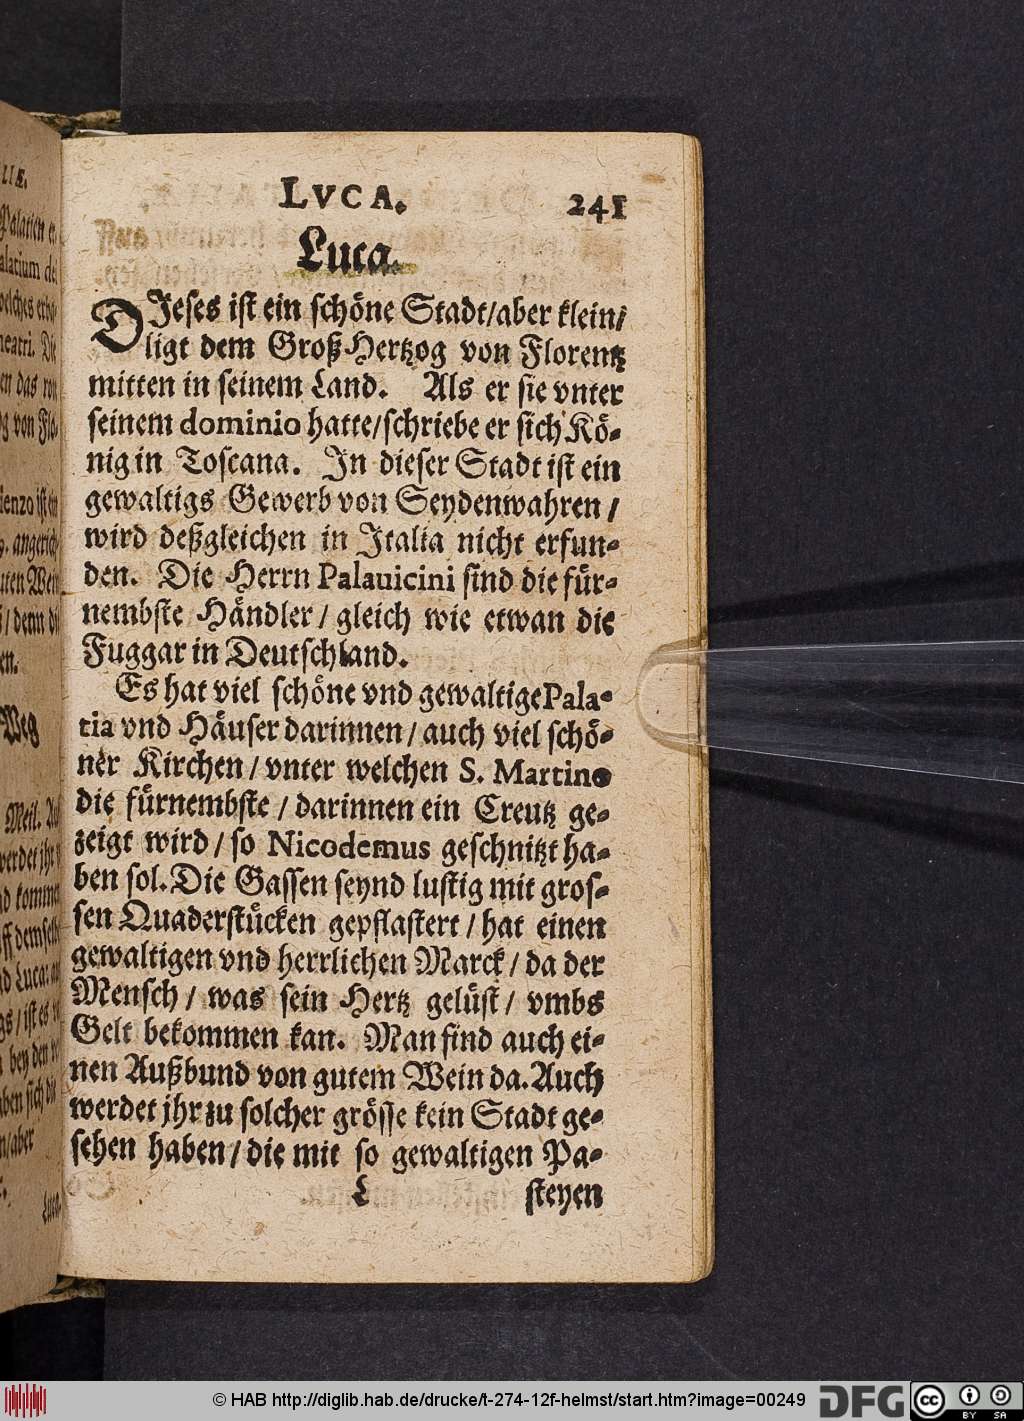 LVCA. 241
Luca.
DJeses ist ein schöne Stadt/aber klein/
ligt dem Groß Hertzog von Florentz
mitten in seinem Land. Als er sie vnter
seinem dominio hatte/schriebe er sich Kö-
nig in Toscana. Jn dieser Stadt ist ein
gewaltigs Gewerb von Seydenwahren /
wird deßgleichen in Jtalia nicht erfun-
den. Die Herrn Palauicini sind die für-
nembste Händler / gleich wie etwan die
Fuggar in Deutschland.
Es hat viel schöne vnd gewaltige Pala-
tia vnd Häuser darinnen / auch viel schö-
ner Kirchen / vnter welchen S. Martino
die fürnembste / darinnen ein Creutz ge-
zeigt wird / so Nicodemus geschnitzt ha-
ben sol. Die Gassen seynd lustig mit gros-
sen Quaderstücken gepflastert / hat einen
gewaltigen vnd herrlichen Marck / da der
Mensch / was sein Hertz gelüst / vmbs
Gelt bekommen kan. Man find auch ei-
nen Außbund von gutem Wein da. Auch
werdet jhr zu solcher grösse kein Stadt ge-
sehen haben / die mit so gewaltigen Pa-
L steyen
© HAB http://diglib.hab.de/drucke/t-274-12f-helmst/start.htm?image=00249
DFG
cc BY SA